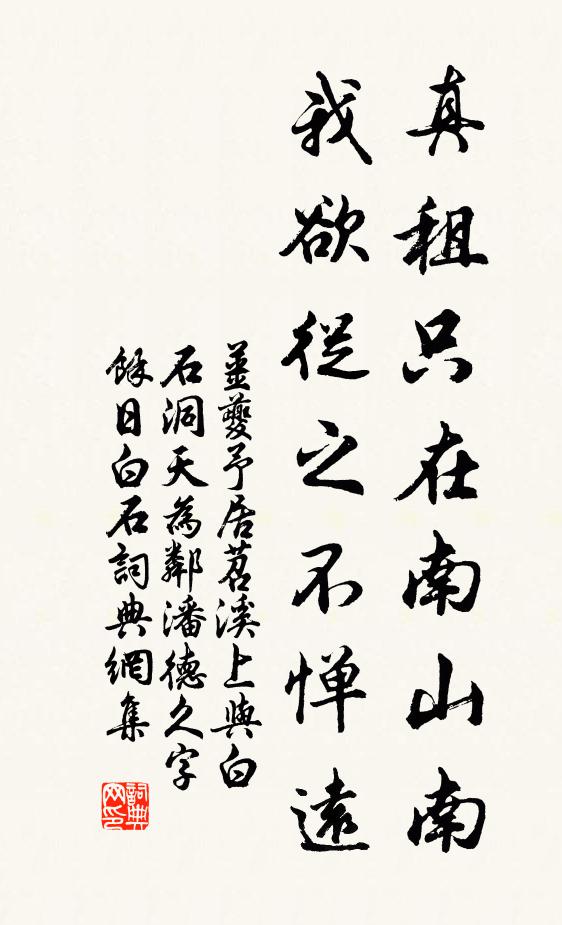 真租只在南山南
我欲從之不憚遠
薑夔予居苕溪上與白
石洞天為鄰潘德久字
餘日白石詞典網集
詞典
网印